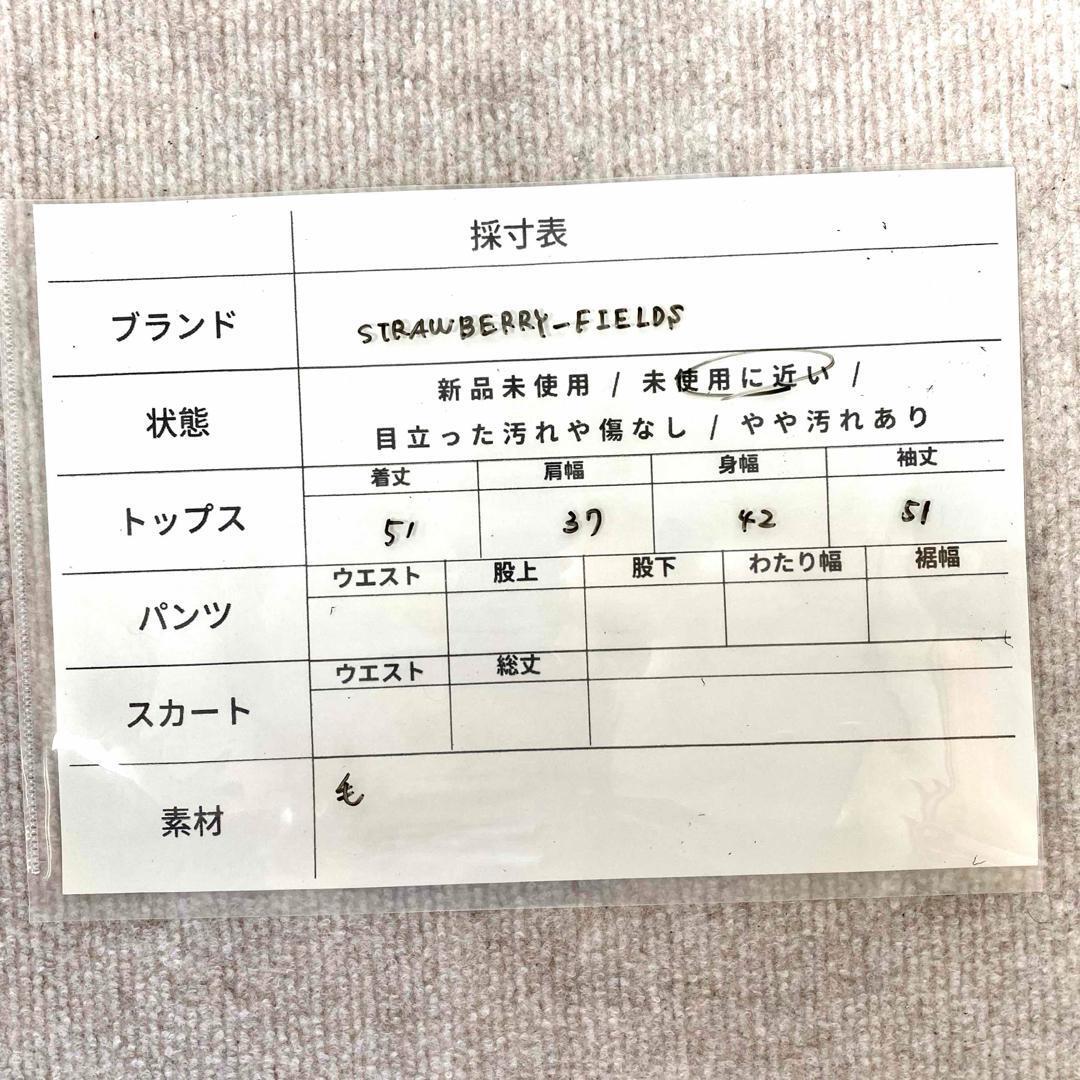 採寸表
ブランド STRAWBERRY-FIELDS
状態 新品未使用 / 未使用に近い /
目立った汚れや傷なし / やや汚れあり
着丈 肩幅 身幅 袖丈
トップス 51 37 42 51
ウエスト 股上 股下 わたり幅 裾幅
パンツ
ウエスト 総丈
スカート
素材 毛